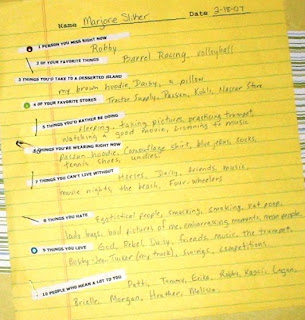 Name Marjorie Sliker Date 2-18-07
1 PERSON YOU MISS RIGHT NOW
Robby
2 OF YOUR FAVORITE THINGS
Barrel Racing, volleyball
3 THINGS YOU'D TAKE TO A DESSERTED ISLAND
my brown hoodie, Daisy, a pillow
4 OF YOUR FAVORITE STORES
Tractor Supply, PacSun, Kohls, Nascar Store
5 THINGS YOU'D RATHER BE DOING
sleeping, taking pictures, practicing trumpet,
watching a good movie, listening to music
6 THINGS YOU'RE WEARING RIGHT NOW
PacSun hoodie, Camouflage shirt, blue jeans, socks,
tennis shoes, undies
7 THINGS YOU CAN'T LIVE WITHOUT
Horses, Daily, friends, music,
movie nights, the beach, Four-wheelers
8 THINGS YOU HATE
Egotistical people, smacking, smoking, cat poop,
lady bugs, bad pictures of me, embarrassing moments, mean people
9 THINGS YOU LOVE
God, Rebel, Daisy, friends, music, the trumpet,
Bobby-Jean Tucker (my truck), swings, competitions
10 PEOPLE WHO MEAN A LOT TO YOU
Patti, Tammy, Erika, Robby, Logan,
Brielle, Morgan, Heather, Melissa